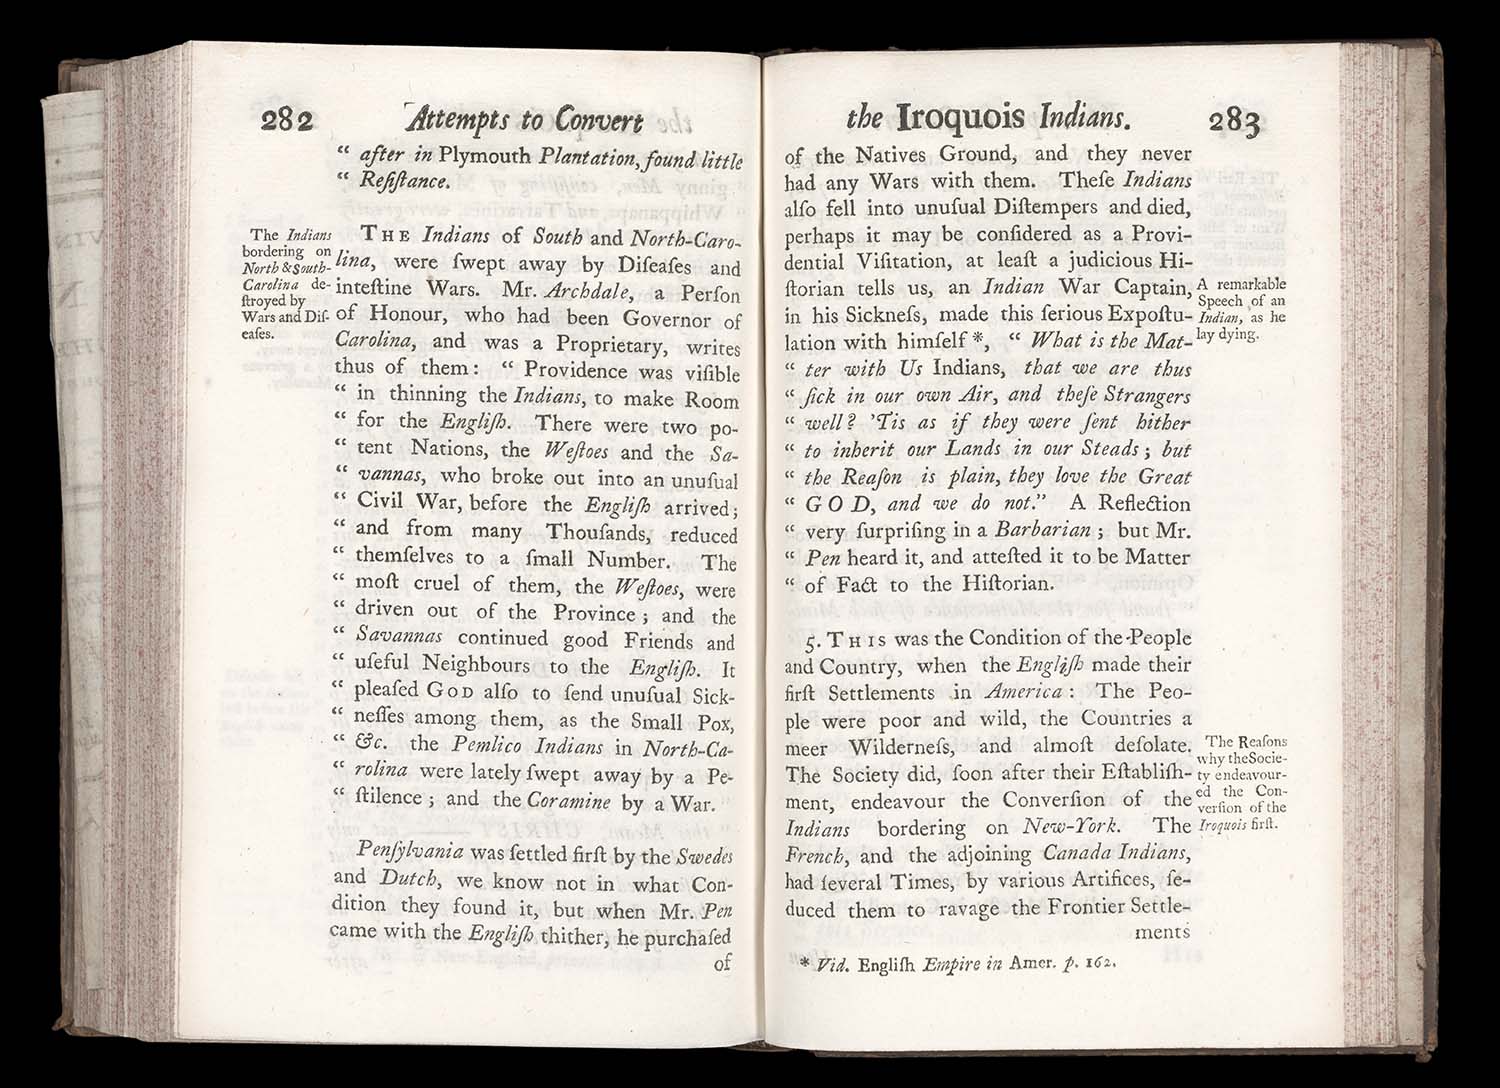 282 Attempts to Convert
“ after in Plymouth Plantation, found little
“ Reſiſtance.
The Indians
bordering on
North & South-
Carolina de-
ſtroyed by
Wars and Diſ-
eaſes.
THE Indians of South and North-Caro-
lina, were ſwept away by Diſeaſes and
inteſtine Wars. Mr. Archdale, a Perſon
of Honour, who had been Governor of
Carolina, and was a Proprietary, writes
thus of them: “ Providence was viſible
“ in thinning the Indians, to make Room
“ for the Engliſh. There were two po-
“ tent Nations, the Weſtoes and the Sa-
“ vannas, who broke out into an unuſual
“ Civil War, before the Engliſh arrived;
“ and from many Thouſands, reduced
“ themſelves to a ſmall Number. The
“ moſt cruel of them, the Weſtoes, were
“ driven out of the Province; and the
“ Savannas continued good Friends and
“ uſeful Neighbours to the Engliſh. It
“ pleaſed GOD alſo to ſend unuſual Sick-
“ neſſes among them, as the Small Pox,
“ &c. the Pemlico Indians in North-Ca-
“ rolina were lately ſwept away by a Pe-
“ ſtilence; and the Coramine by a War.
Penſylvania was ſettled firſt by the Swedes
and Dutch, we know not in what Con-
dition they found it, but when Mr. Pen
came with the Engliſh thither, he purchaſed
of
the Iroquois Indians. 283
of the Natives Ground, and they never
had any Wars with them. Theſe Indians
alſo fell into unuſual Diſtempers and died,
perhaps it may be conſidered as a Provi-
dential Viſitation, at leaſt a judicious Hi-
ſtorian tells us, an Indian War Captain,
in his Sickneſs, made this ſerious Expoſtu-
lation with himſelf *, “ What is the Mat-
“ ter with Us Indians, that we are thus
“ ſick in our own Air, and theſe Strangers
“ well? 'Tis as if they were ſent hither
“ to inherit our Lands in our Steads; but
“ the Reaſon is plain, they love the Great
“ GOD, and we do not.” A Reflection
“ very ſurpriſing in a Barbarian; but Mr.
“ Pen heard it, and atteſted it to be Matter
“ of Fact to the Hiſtorian.
A remarkable
Speech of an
Indian, as he
lay dying.
5. THIS was the Condition of the People
and Country, when the Engliſh made their
firſt Settlements in America: The Peo-
ple were poor and wild, the Countries a
meer Wilderneſs, and almoſt deſolate.
The Society did, ſoon after their Eſtabliſh-
ment, endeavour the Converſion of the
Indians bordering on New-York. The
French, and the adjoining Canada Indians,
had ſeveral Times, by various Artifices, ſe-
duced them to ravage the Frontier Settle-
ments
The Reaſons
why the Socie-
ty endeavour-
ed the Con-
verſion of the
Iroquois firſt.
* Vid. Engliſh Empire in Amer. p. 162.